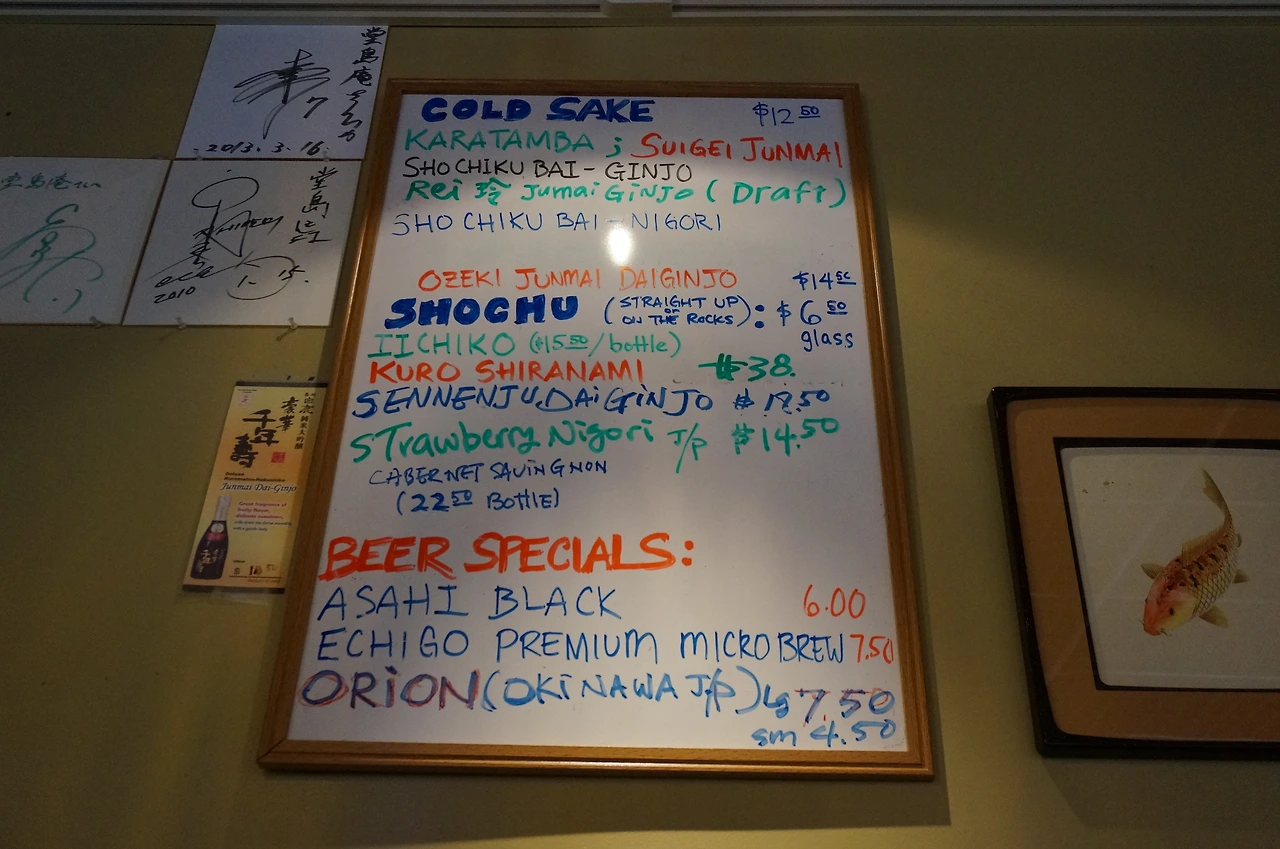 堂島庵
7
2013.3.16.
堂島庵
2010
1.15.
COLD SAKE $12 50
KARATAMBA ; SUIGEI JUNMAI
SHO CHIKU BAI - GINJO
Rei 玲 Jumai GINJO (Draft)
SHO CHIKU BAI - NIGORI
OZEKI JUNMAI DAIGINJO $14 50
SHOCHU (STRAIGHT UP or ON THE ROCKS) : $6 50
glass
IICHIKO ($15 50/bottle)
KURO SHIRANAMI $38.
SENNENJU DAIGINJO $ 19.50
STrawberry Nigori J/P $14.50
CABERNET SAUINGNON
(22 50 BOTTLE)
BEER SPECIALS:
ASAHI BLACK 6.00
ECHIGO PREMIUM MICRO BREW 7.50
ORION (OKINAWA J/P) Lg 7.50
sm 4.50
豪華
千年寿
純米大吟醸
Junmai Dai-Ginjo